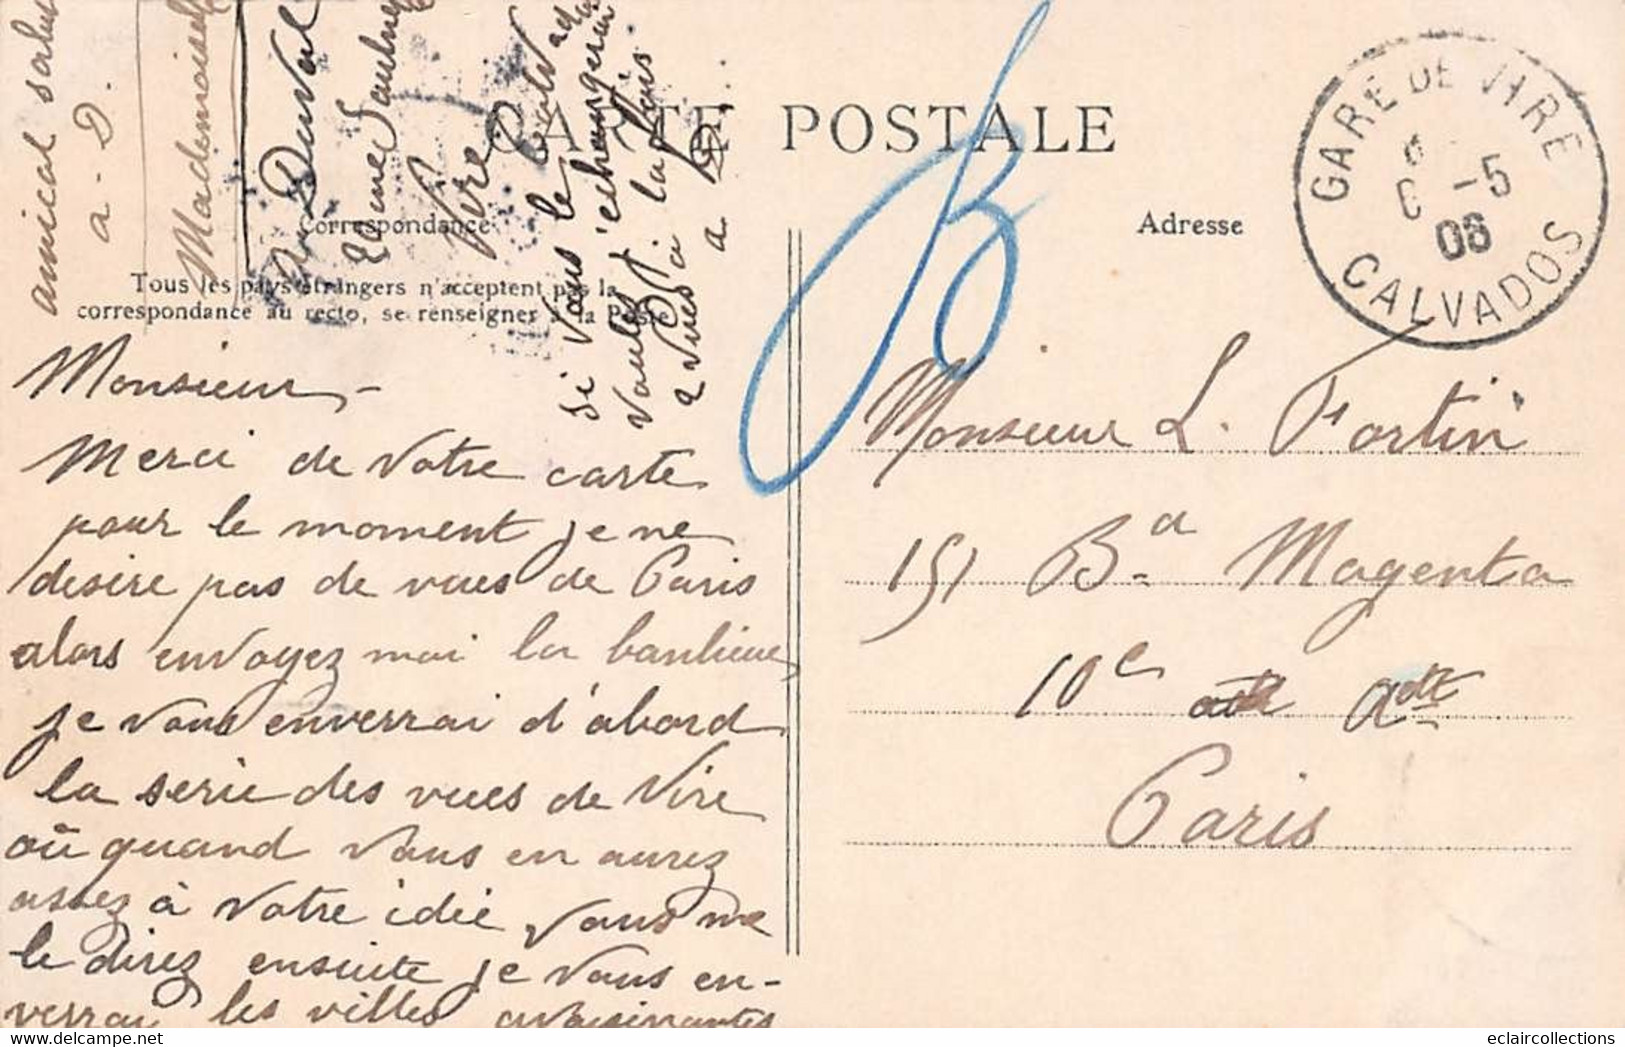 CARTE POSTALE
Correspondance
Adresse
Tous les pays étrangers n'acceptent pas la
correspondance au recto, se renseigner à la Poste
GARE DE VIRE
6 -5
06
CALVADOS
Monsieur -
Merci de votre carte
pour le moment je ne
desire pas de vues de Paris
alors envoyez moi la banlieue
je vous enverrai d'abord
la serie des vues de Vire
où quand vous en aurez
assez à votre idée vous me
le direz ensuite je vous en-
verrai les villes avoisinantes
si vous le
voulez j'échangerai
2 vues à la fois
a D.
amical salut
a - D.
Mademoiselle
Duval
Vire Calvados
B
Monsieur L. Fortin
151 Bd Magenta
10e Adt
Paris
eclaircollections